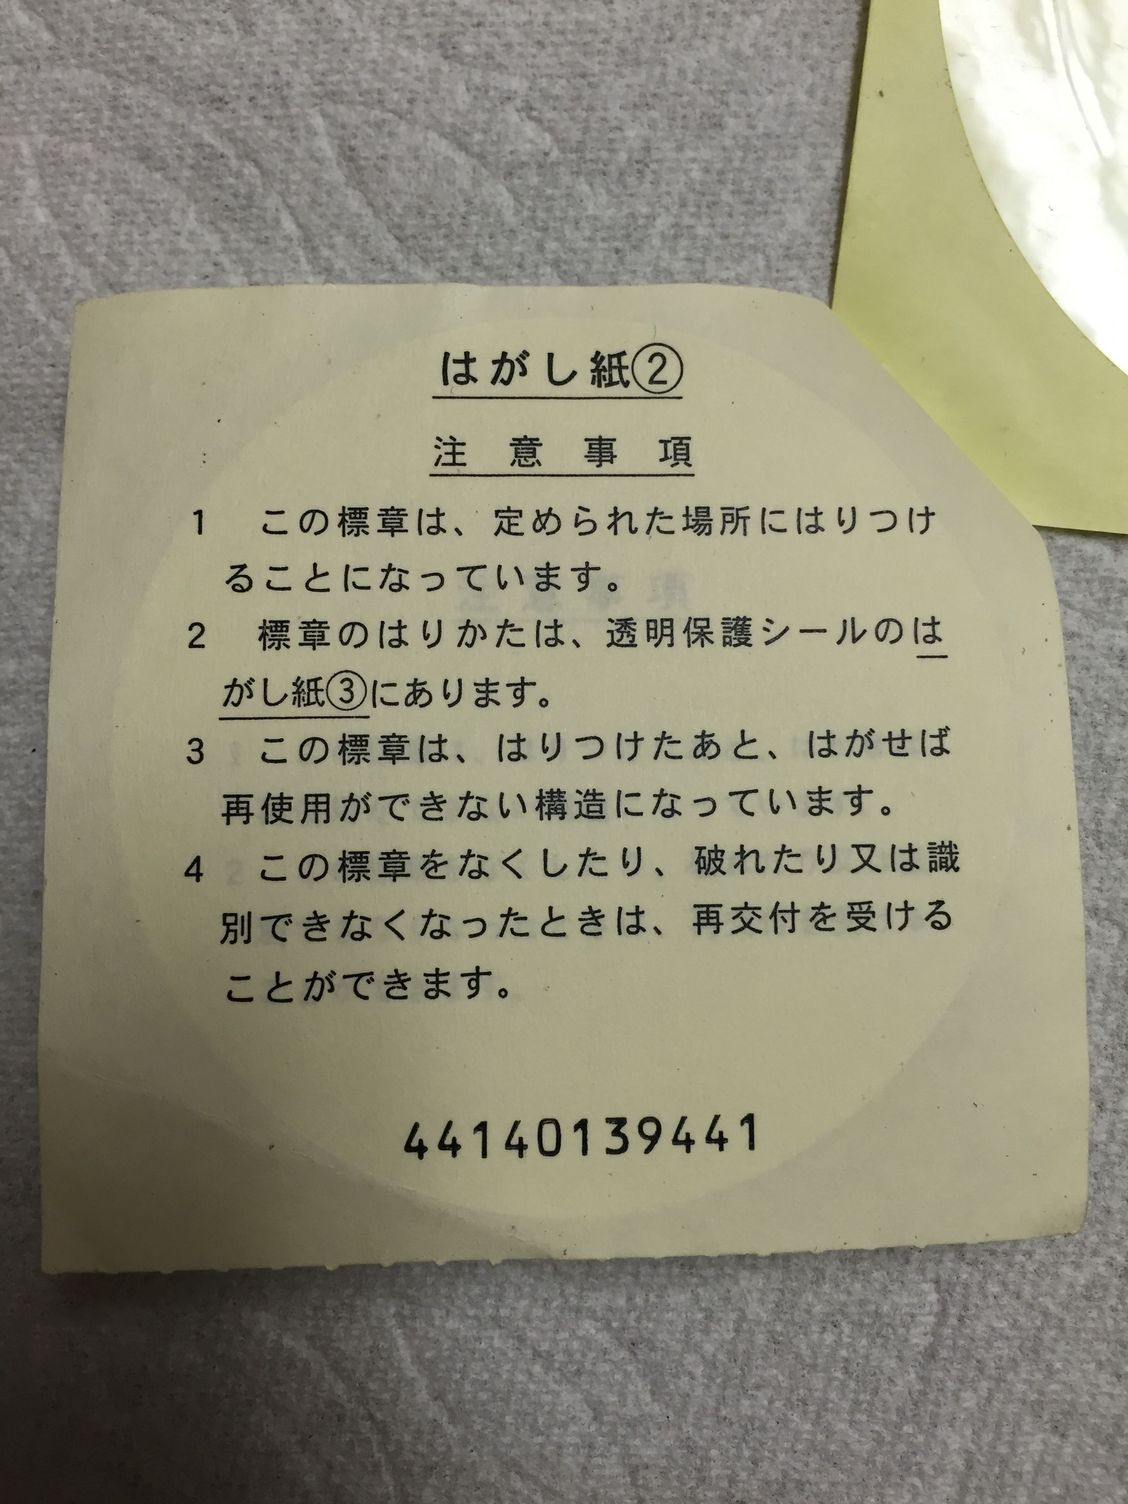 はがし紙②
注意事項
1 この標章は、定められた場所にはりつけ
ることになっています。
2 標章のはりかたは、透明保護シールのは
がし紙③にあります。
3 この標章は、はりつけたあと、はがせば
再使用ができない構造になっています。
4 この標章をなくしたり、破れたり又は識
別できなくなったときは、再交付を受ける
ことができます。
44140139441